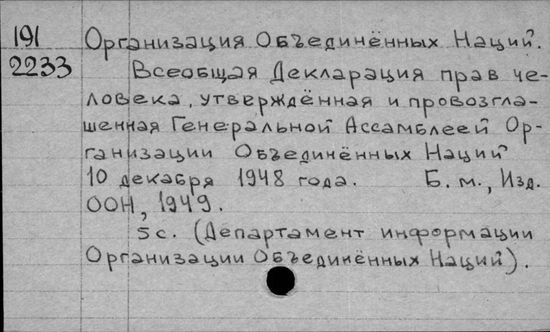 191 Организация Объединённых Наций.
2233 Всеобщая Декларация прав че-
ловека, утверждённая и провозгла-
шенная Генеральной Ассамблеей Ор-
ганизации Объединённых Наций
10 декабря 1948 года. Б. м., Изд.
ООН, 1949.
5 с. (Департамент информации
Организации Объединённых Наций).